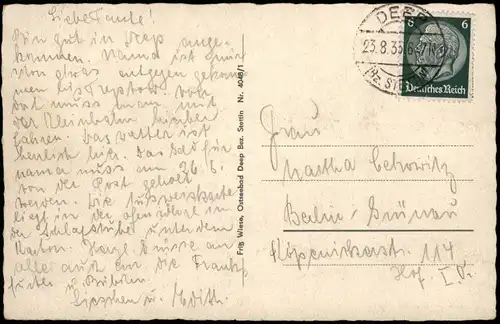 Liebe Tante!
Bin gut in Deep ange-
kommen. Mama ist mir
von etwas entgegen gekom
men bis Treptow von
dort muss man mit
der Kleinbahn hierher
fahren. Das Wetter ist
herrlich hier. Das Geld für
mama muss am 26.8.
von der Post geholt
werden. Die Ausweiskarte
liegt in der
der Schlafstube unter dem
Karton. Grüsse an
alle auch an die Frank
furter u.
u. Edith.
Fritz Wiese, Ostseebad Deep Bez. Stettin Nr. 4048/1
DEEP
23.8.35.6-7N
Bz. STETTIN
6 6
Deutsches Reich
Frau
Martha
Berlin-Grünau
Köpenickerstr. 114
Hof I.